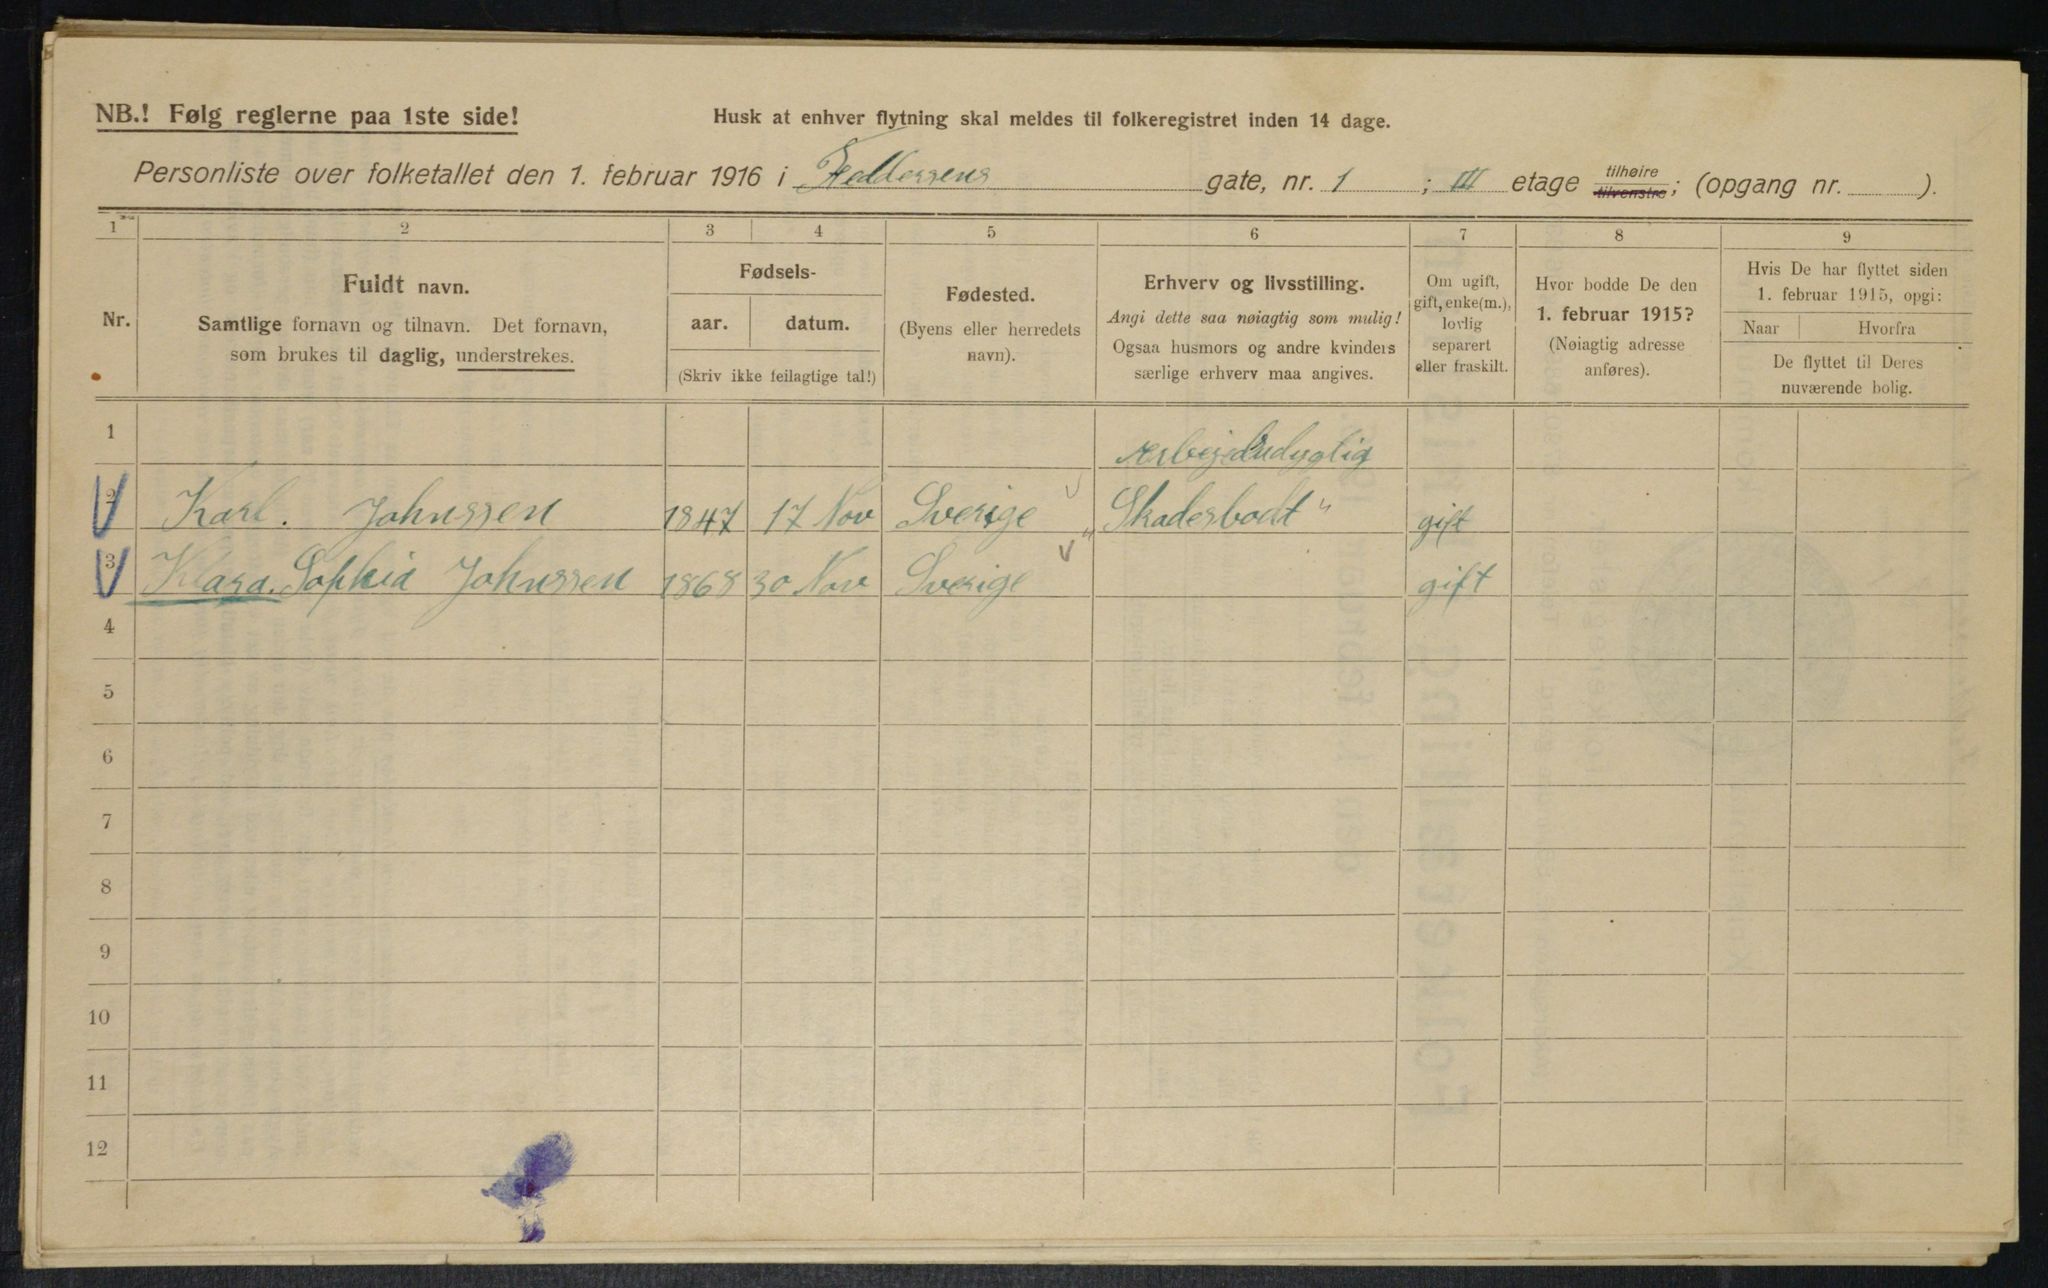 NB.! Følg reglerne paa 1ste side!
Husk at enhver flytning skal meldes til folkeregistret inden 14 dage.
Personliste over folketallet den 1. februar 1916 i Feddersens gate, nr. 1 ; III etage tilhøire tilvenstre; (opgang nr. ).
1 2 3 4 5 6 7 8 9
Nr.
Fuldt navn.
Samtlige fornavn og tilnavn. Det fornavn,
som brukes til daglig, understrekes.
Fødsels-
aar. datum.
(Skriv ikke feilagtige tal!)
Fødested.
(Byens eller herredets
navn).
Erhverv og livsstilling.
Angi dette saa nøiagtig som mulig!
Ogsaa husmors og andre kvinders
særlige erhverv maa angives.
Om ugift,
gift, enke(m.),
lovlig
separert
eller fraskilt.
Hvor bodde De den
1. februar 1915?
(Nøiagtig adresse
anføres).
Hvis De har flyttet siden
1. februar 1915, opgi:
Naar Hvorfra
De flyttet til Deres
nuværende bolig.
1 Arbejdsudyglig
2 Karl. Johnssen 1847 17 Nov Sverige "Skaderbodt" gift
3 Klara. Sophia Johnssen 1868 30 Nov Sverige gift
4
5
6
7
8
9
10
11
12